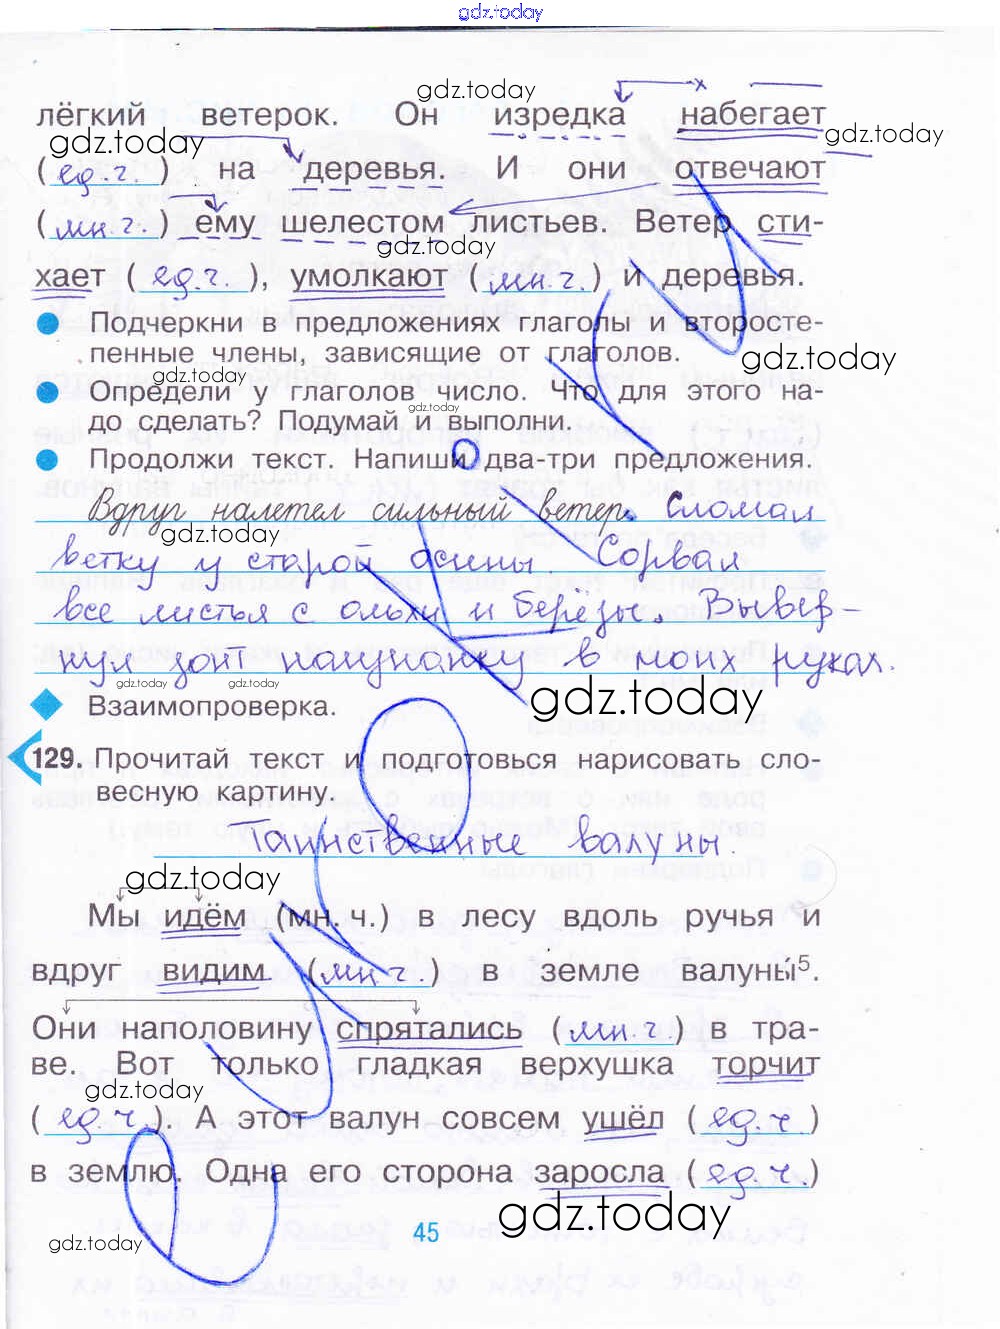 gdz.today
gdz.today
лёгкий ветерок. Он изредка набегает
gdz.today gdz.today
(ед.ч.) на деревья. И они отвечают
(мн.ч.) ему шелестом листьев. Ветер сти-
gdz.today
хает (ед.ч.), умолкают (мн.ч.) и деревья.
Подчеркни в предложениях глаголы и второсте-
пенные члены, зависящие от глаголов.
gdz.today gdz.today
Определи у глаголов число. Что для этого на-
gdz.today
до сделать? Подумай и выполни.
Продолжи текст. Напиши два-три предложения.
Вдруг налетел сильный ветер. Сломал
gdz.today
ветку у старой осины. Сорвал
все листья с ольхи и берёзы. Вывер-
нул зонт наизнанку в моих руках.
gdz.today gdz.today gdz.today
Взаимопроверка.
129. Прочитай текст и подготовься нарисовать сло-
весную картину.
Таинственные валуны.
gdz.today
Мы идём (мн. ч.) в лесу вдоль ручья и
вдруг видим (мн.ч.) в земле валуны⁵.
Они наполовину спрятались (мн.ч.) в тра-
ве. Вот только гладкая верхушка торчит
gdz.today
(ед.ч.). А этот валун совсем ушёл (ед.ч.)
в землю. Одна его сторона заросла (ед.ч.)
gdz.today
45
gdz.today